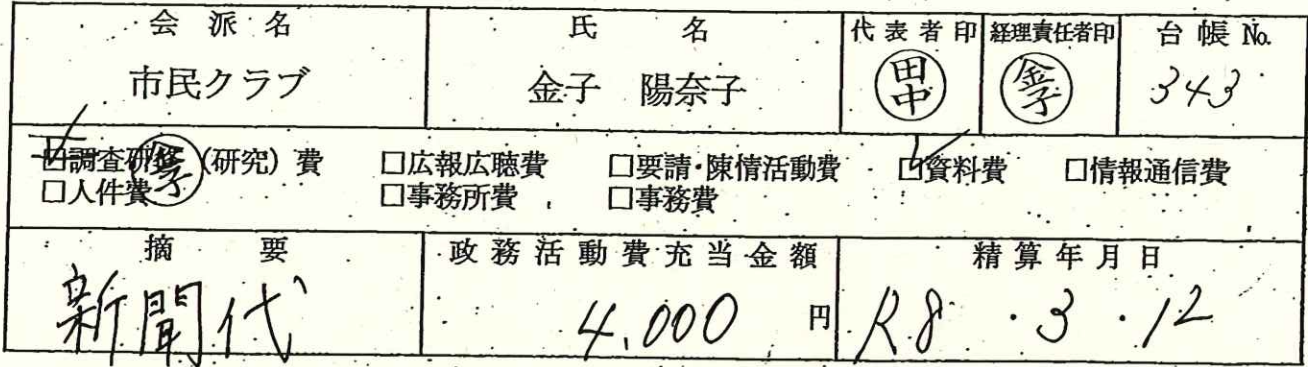 会派名 氏名 代表者印 経理責任者印 台帳 No.
市民クラブ 金子 陽奈子 田中 金子 343
☑調査研修(研究)費 □広報広聴費 □要請・陳情活動費 ☑資料費 □情報通信費
□人件費 金子 □事務所費 □事務費
摘要 政務活動費充当金額 精算年月日
新聞代 4,000 円 R.8・3・12